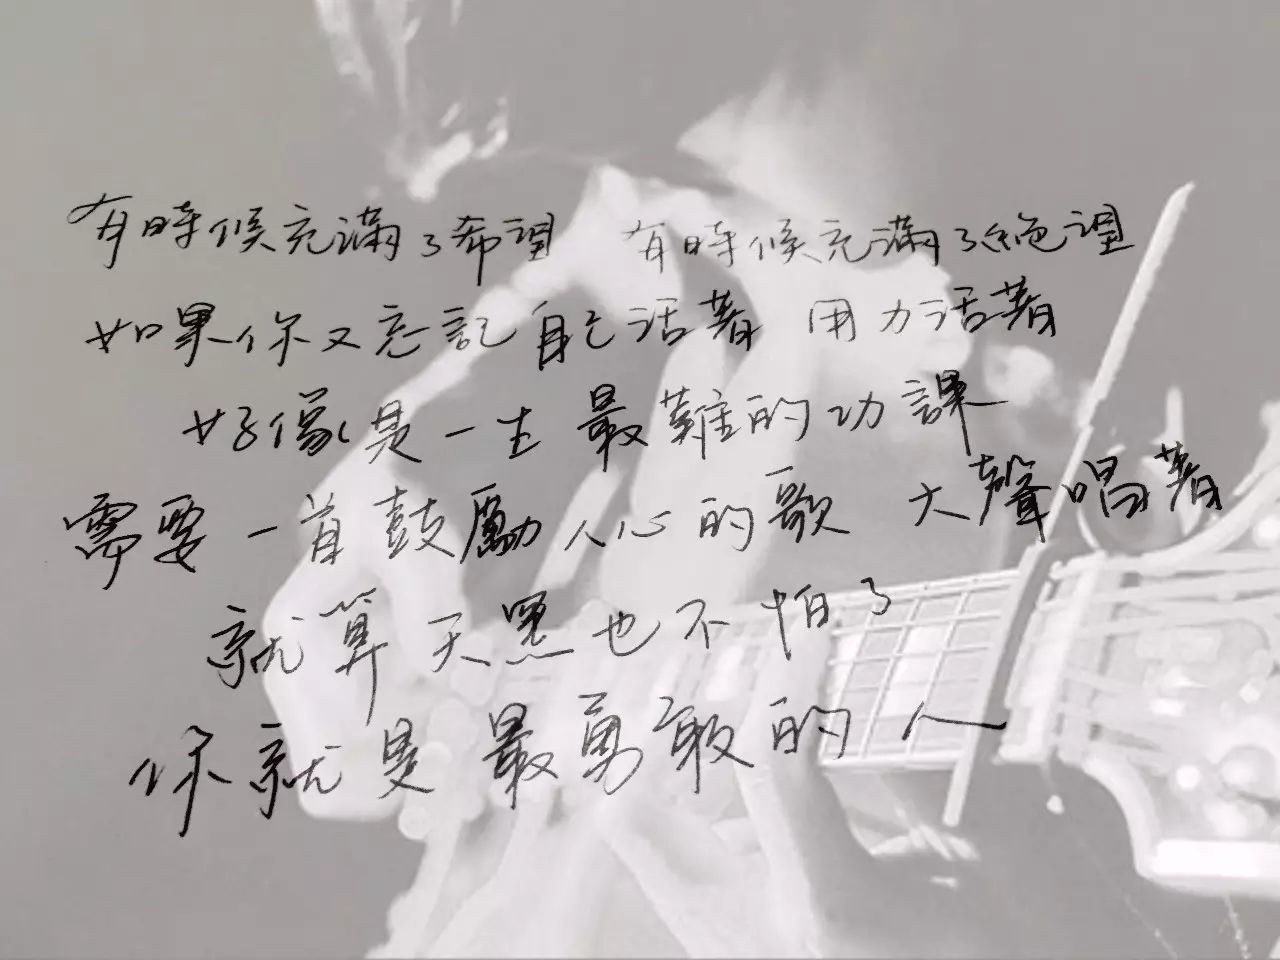 有時候充滿了希望 有時候充滿了絕望
如果你又忘記自己活著 用力活著
好像是一生最難的功課
需要一首鼓勵人心的歌 大聲唱著
就算天黑也不怕了
你就是最勇敢的人